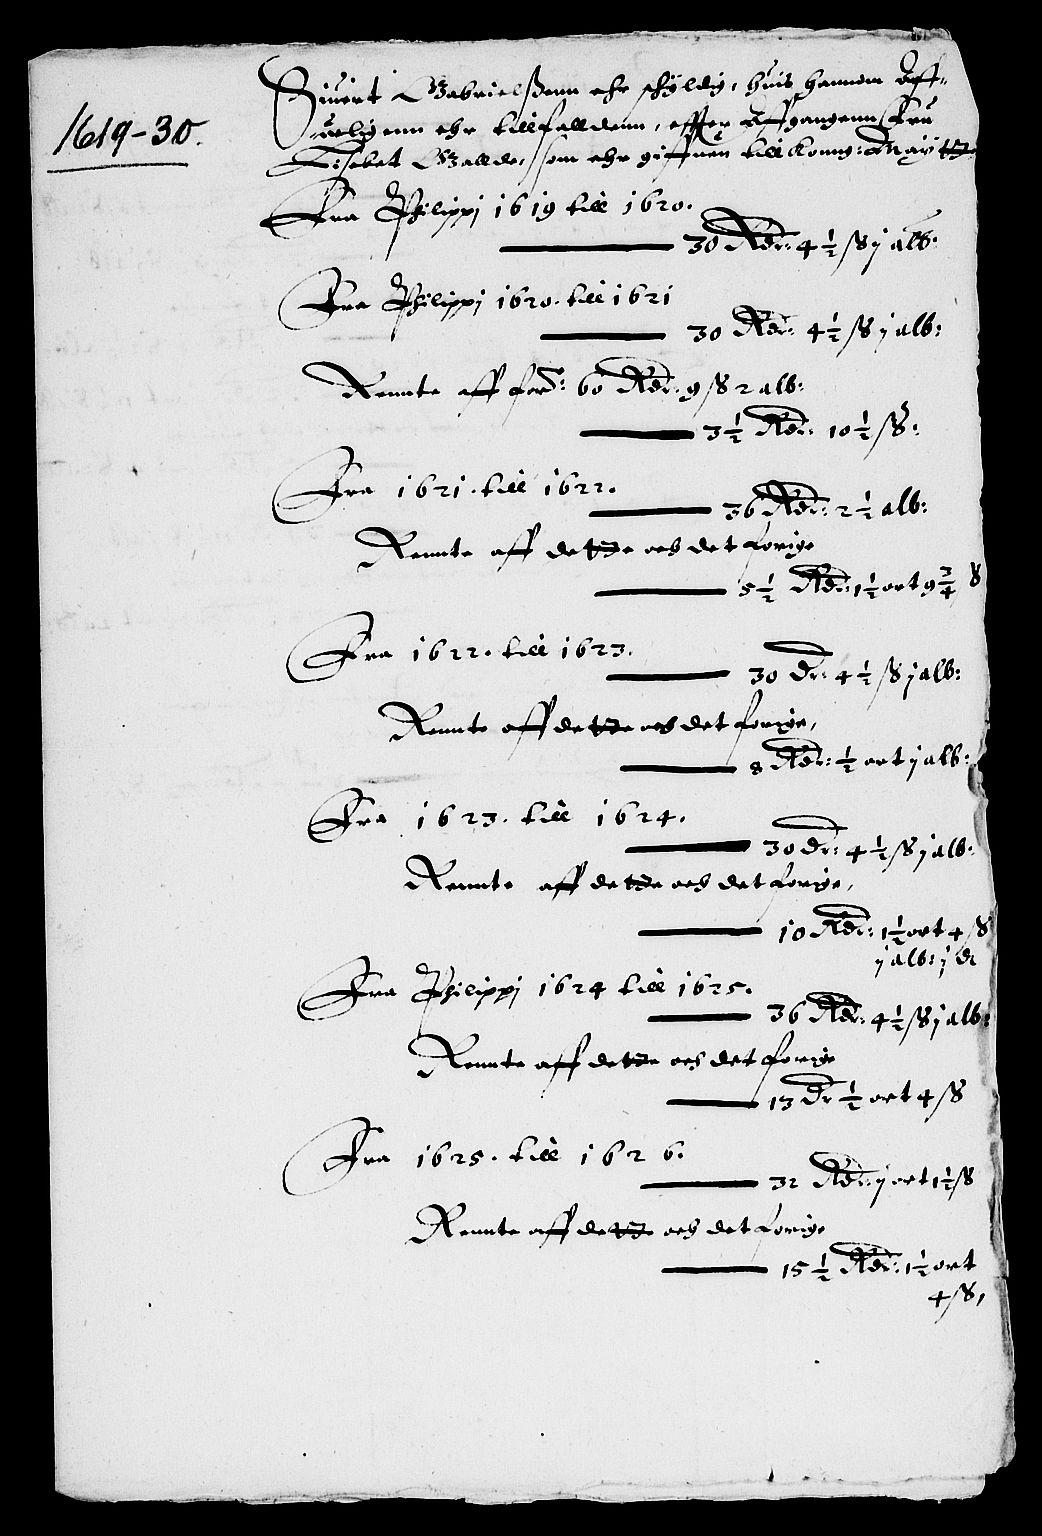 1619-30.
Siuert Gabrielßenn ehr schyldig, huis hannom Aff-
uelig enn ehr tillfalldenn, effter Affgangenn Fru
Lisebet Gallde, som ehr giffuen till Konng: May:tt
Fra Philippj 1619 till 1620.
30 Rdr: 4 1/2 ß j alb:
Fra Philippj 1620. till 1621
30 Rdr: 4 1/2 ß j alb:
Rennte aff for: 60 Rdr. 9 ß 2 alb:
3 1/2 Rdr: 10 1/2 ß:
Fra 1621. till 1622.
36 Rdr: 2 1/2 alb:
Rennte aff dette och det forige
5 1/2 Rdr: 1 1/2 ort 9 3/4 ß
Fra 1622. till 1623.
30 dr: 4 1/2 ß j alb:
Rennte aff dette och det forige,
8 Rdr: 1/2 ort j alb:
Fra 1623. till 1624.
30 dr: 4 1/2 ß j alb:
Rennte aff dette och det forige,
10 Rdr: 1 1/2 ort 4 ß
j alb: j d
Fra Philippj 1624 till 1625.
36 Rdr: 4 1/2 ß j alb:
Rennte aff dette och det forige
13 dr 1/2 ort 4 ß
Fra 1625. till 1626.
32 Rdr: j ort 1 1/2 ß
Rennte aff dette och det forige
15 1/2 Rdr: 1 1/2 ort
4 ß,